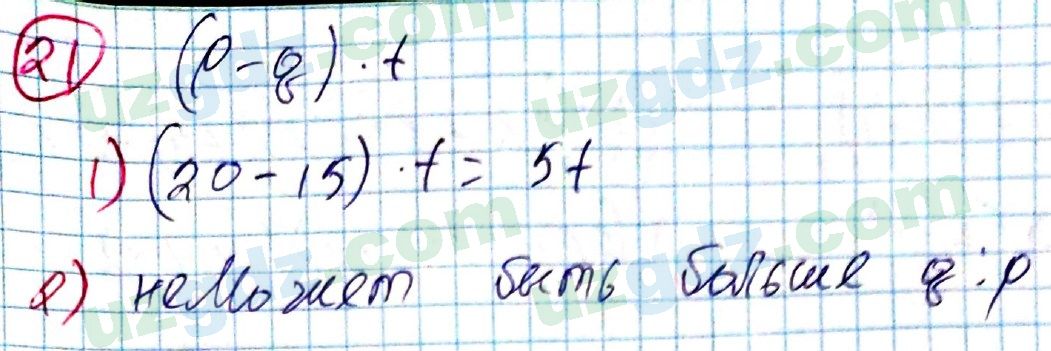 21 (p - q) · t
1) (20 - 15) · t = 5t
2) неможет быть больше q : p
uzgdz.com
uzgdz.com
uzgdz.com
uzgdz.com
uzgdz.com